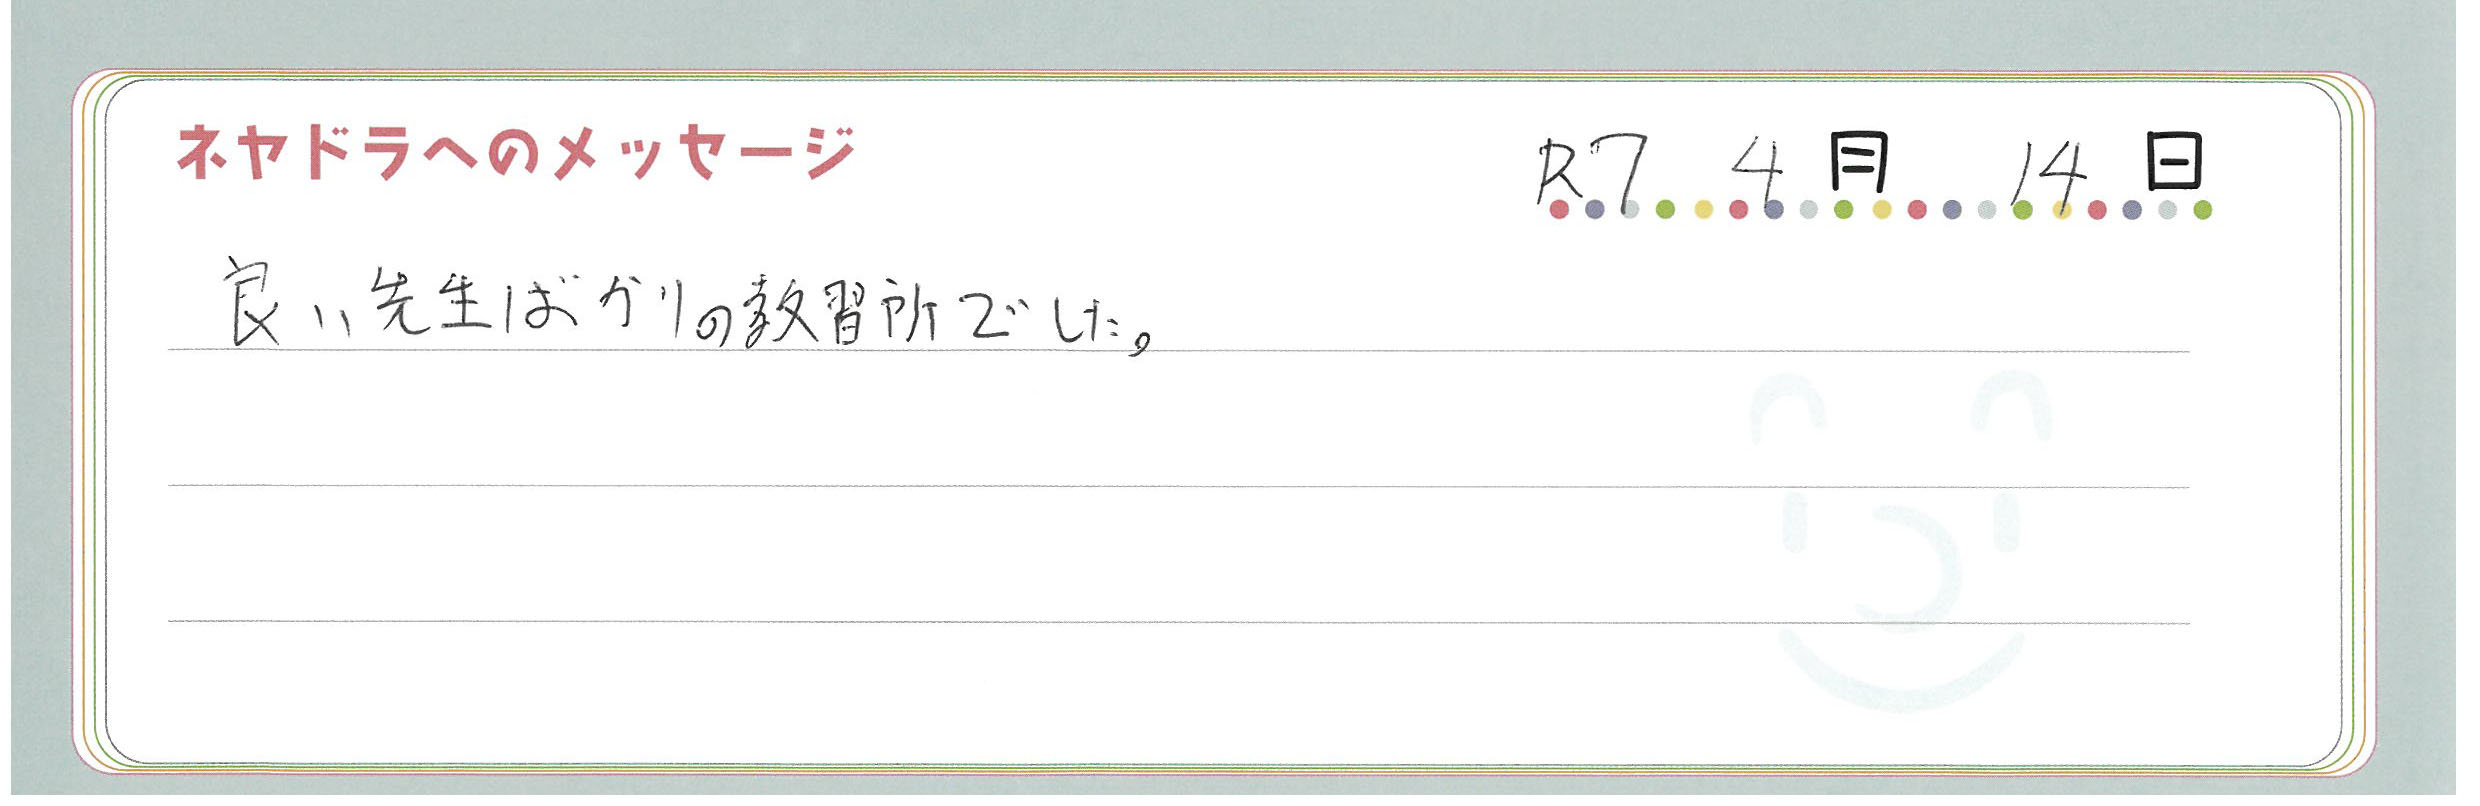 ネヤドラへのメッセージ
R7 4月 14日
良い先生ばかりの教習所でした。